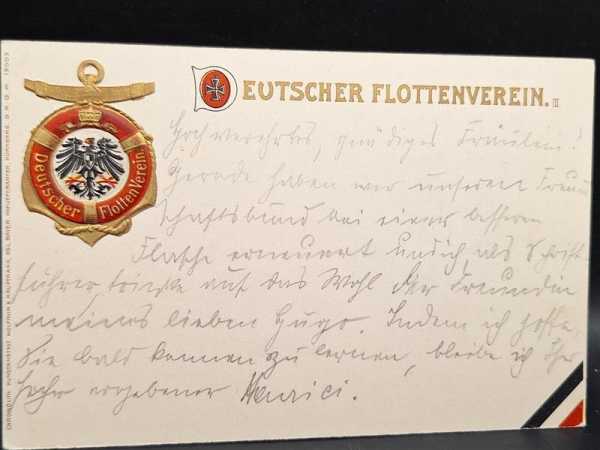 DEUTSCHER FLOTTENVEREIN. II
Deutscher Flotten Verein.
Hochverehrtes, gnädiges Fräulein!
Gerade haben wir unseren Freund
schaftsbund bei einer besseren
Flasche erneuert und ich als Schrift
führer trinke auf das Wohl der Freundin
meines lieben Hugo. Indem ich hoffe,
Sie bald kennen zu lernen, bleibe ich Ihr
sehr ergebener Henrici.